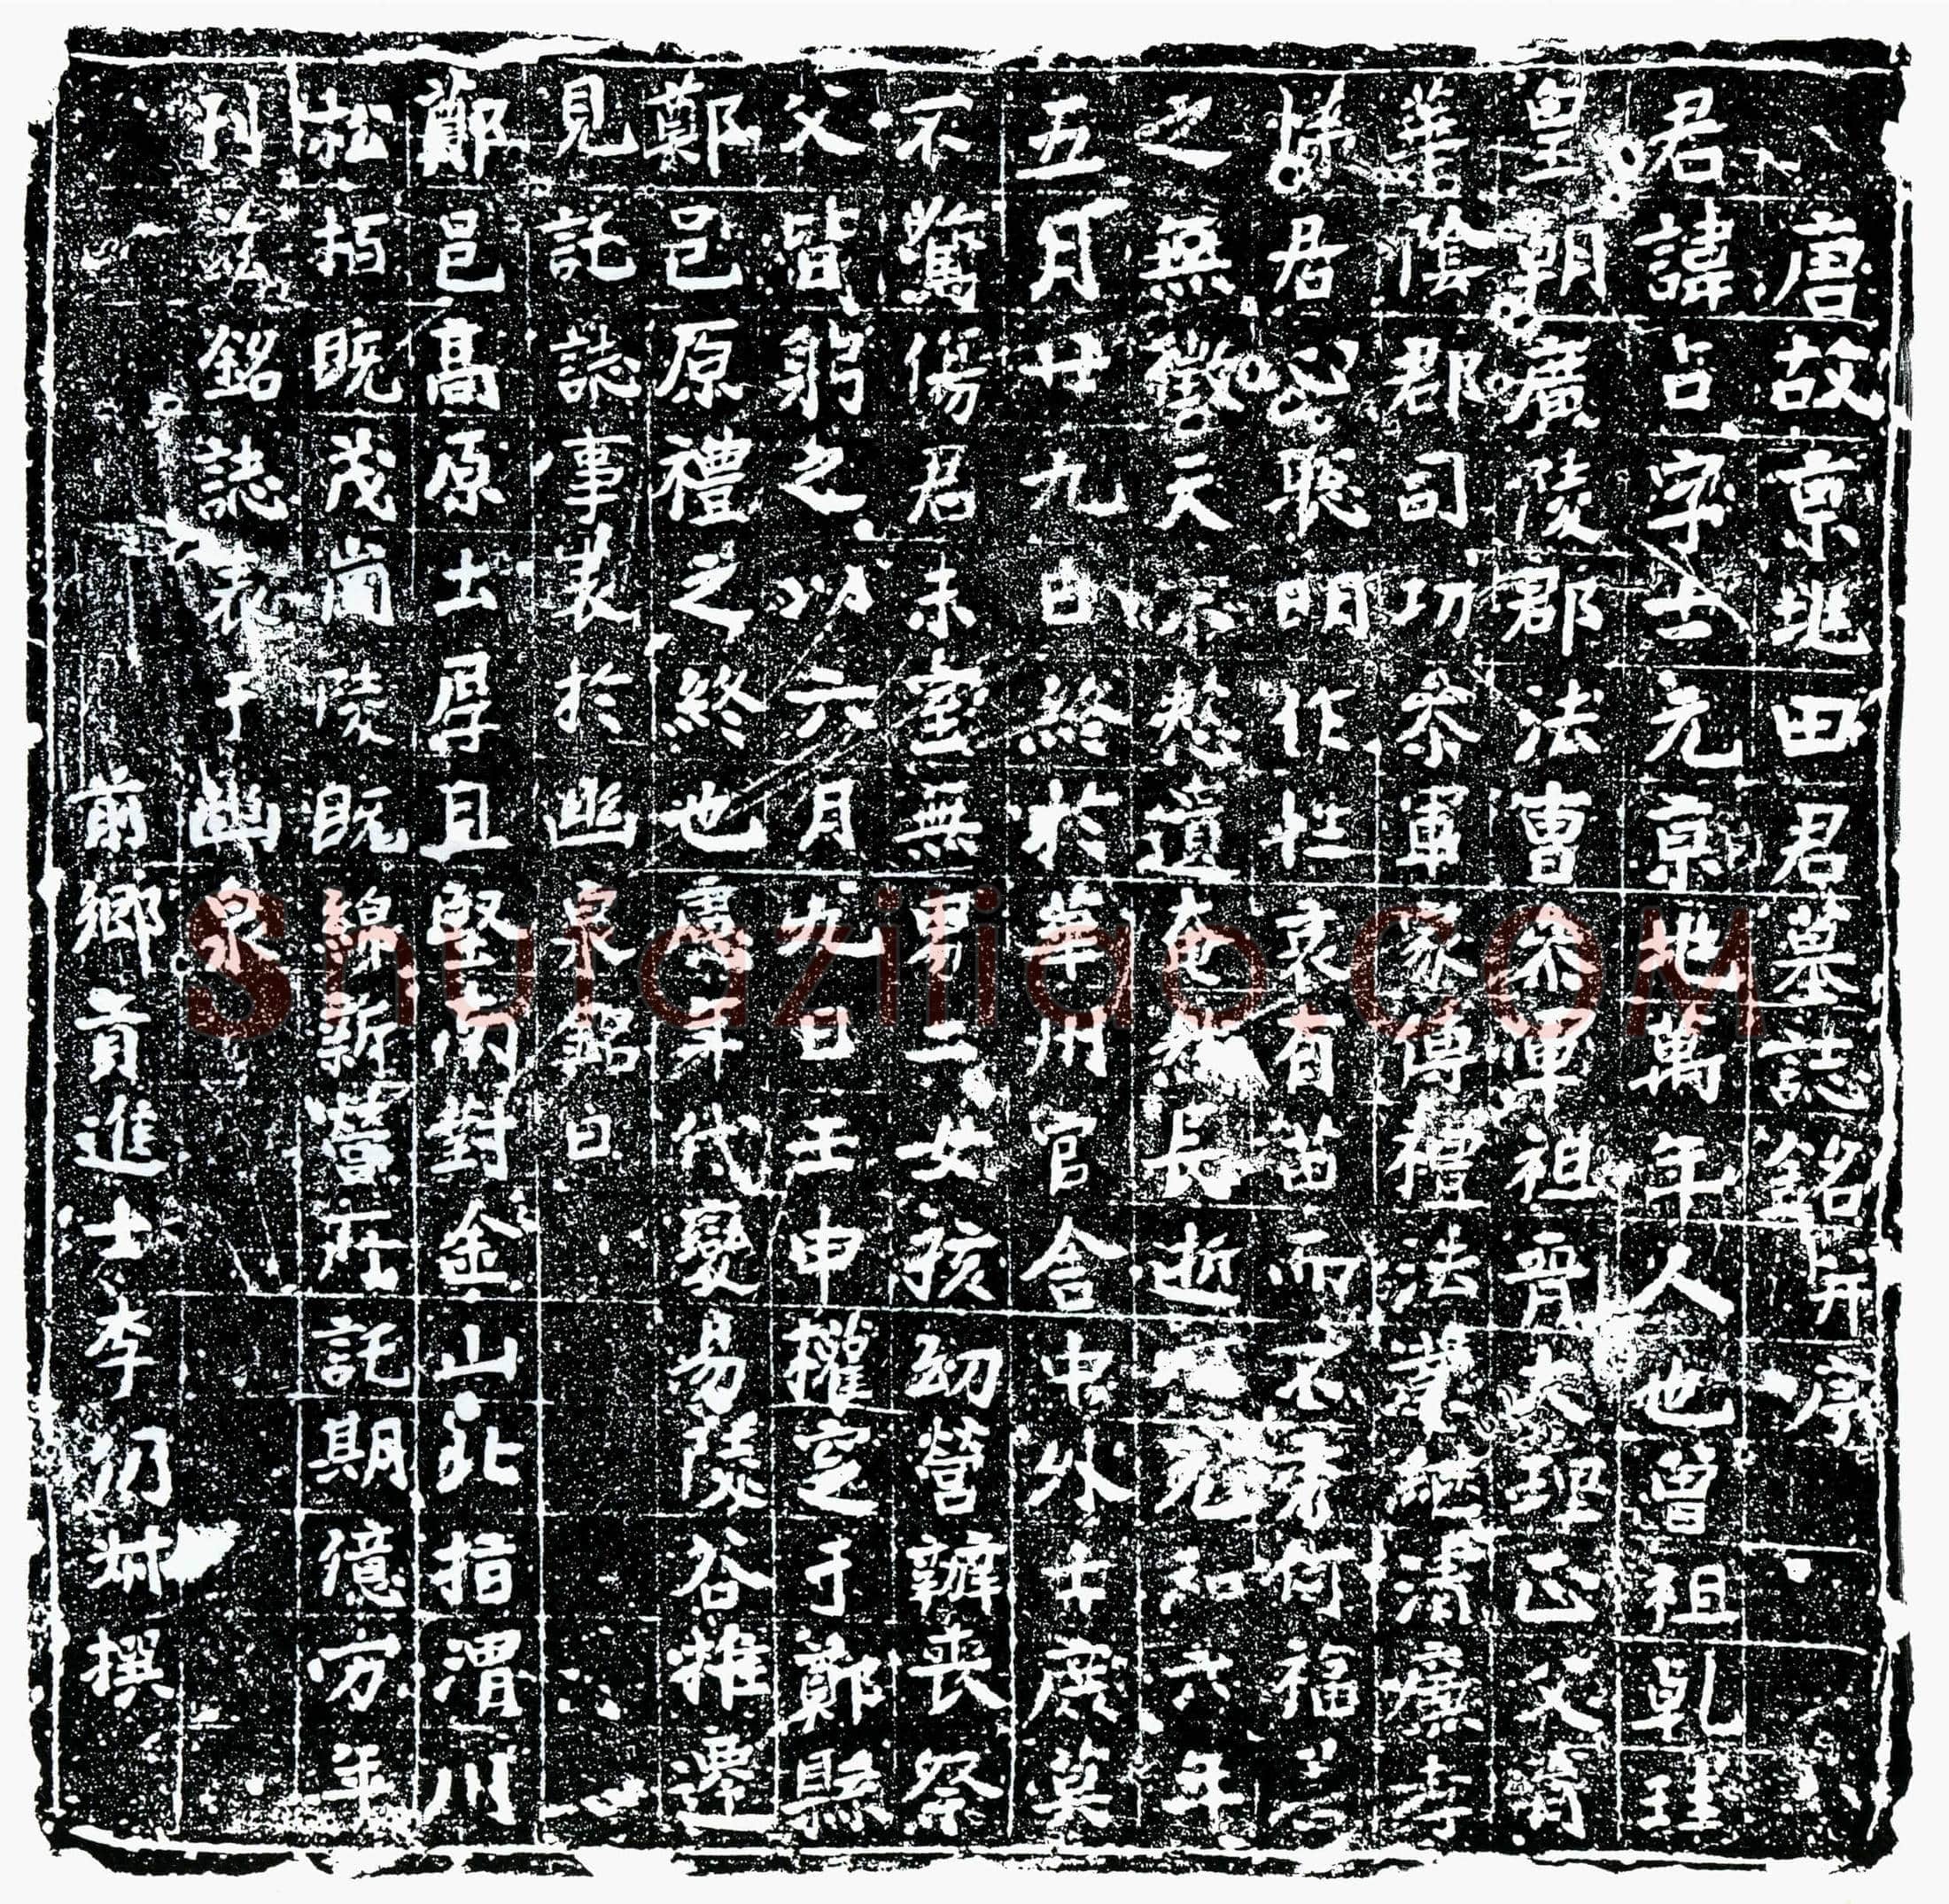 唐故京兆田君墓誌銘并序
君諱占字士元京地萬年人也曾祖乹珪
皇朝廣陵郡法曹叅軍祖脊大理正父脊
華陰郡司功叅軍家傳禮法業繼清廣孝
悌君心聡明作性哀有苗而不秀何福善
之無徵天不慭遺奄然長逝元和六年
五月廿九日終於華州官舍中外士庶莫
不驚傷君未室無男二女孩幼營辦喪祭
父皆躬之以六月九日壬申權窆于鄭縣
鄭邑原禮之終也慮年代變易陵谷推遷
見託誌事裝於幽泉銘曰
鄭邑髙原土厚且堅南對金山北指渭川
松栁既茂崗陵既綿新營庄託期億万年
刋茲銘誌表于幽泉
前鄉貢進士李初撰
Shufaziliao.COM